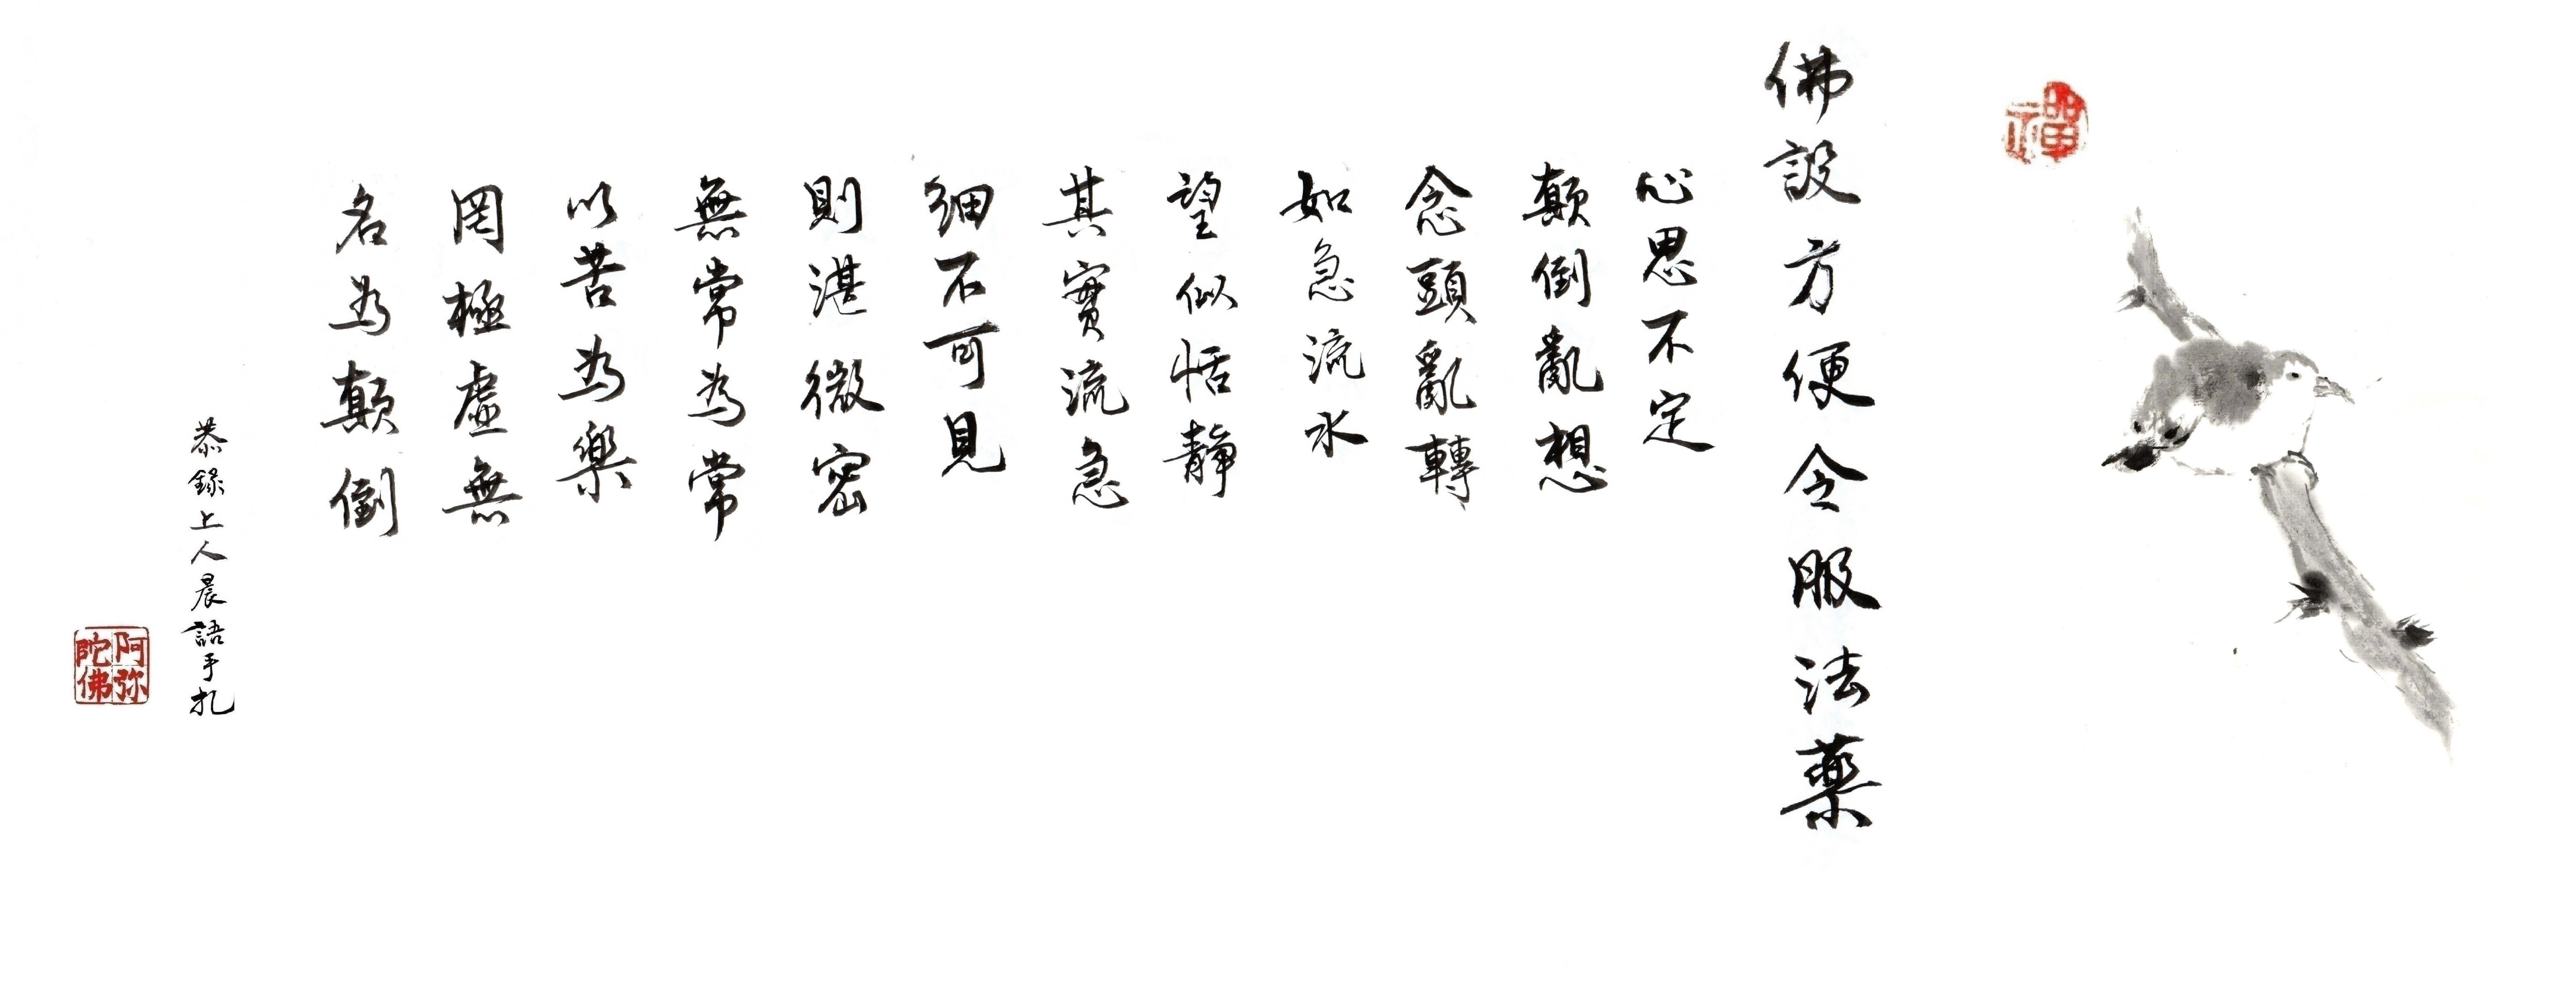 禪
佛設方便令服法藥
心思不定
顛倒亂想
念頭亂轉
如急流水
望似恬靜
其實流急
細不可見
則湛微密
無常為常
以苦為樂
罔極虛無
名為顛倒
恭錄上人晨語手扎
阿弥
陀佛